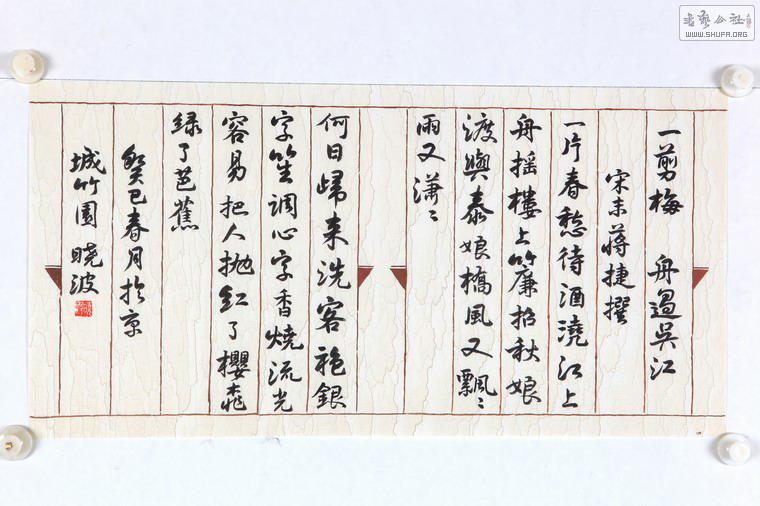 一剪梅 舟過吳江
宋末蔣捷撰
一片春愁待酒澆江上
舟摇樓上簾招秋娘
渡與泰娘橋風又飄〻
雨又瀟〻
何日歸来洗客袍銀
字笙調心字香燒流光
容易把人抛红了櫻桃
绿了芭蕉
癸巳春月於京
城竹園 晓波
書藝公社
WWW.SHUFA.ORG